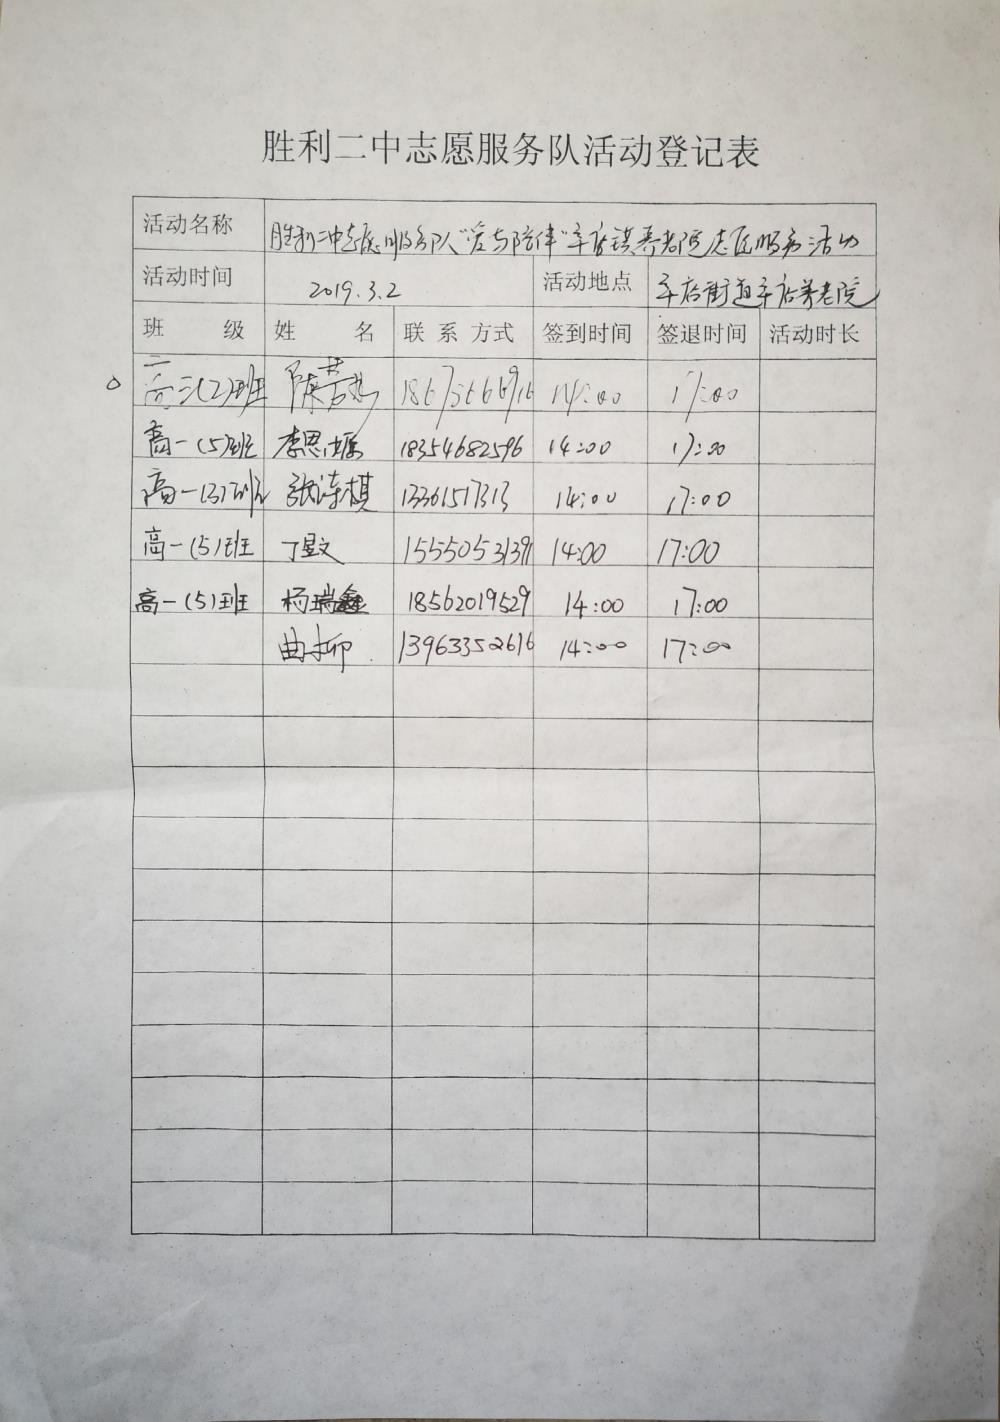 胜利二中志愿服务队活动登记表
活动名称 胜利二中志愿服务队"爱与陪伴"辛店镇养老院志愿服务活动
活动时间 2019.3.2 活动地点 辛店街道辛店养老院
班 级 姓 名 联 系 方式 签到时间 签退时间 活动时长
高二(2)班 陈 14:00 17:00
高一(5)班 李思 18354682596 14:00 17:00
高一(3)班 张 棋 13361517313 14:00 17:00
高一(5)班 丁 文 15550531391 14:00 17:00
高一(5)班 杨瑞鑫 18562019529 14:00 17:00
曲柳 13963352616 14:00 17:00